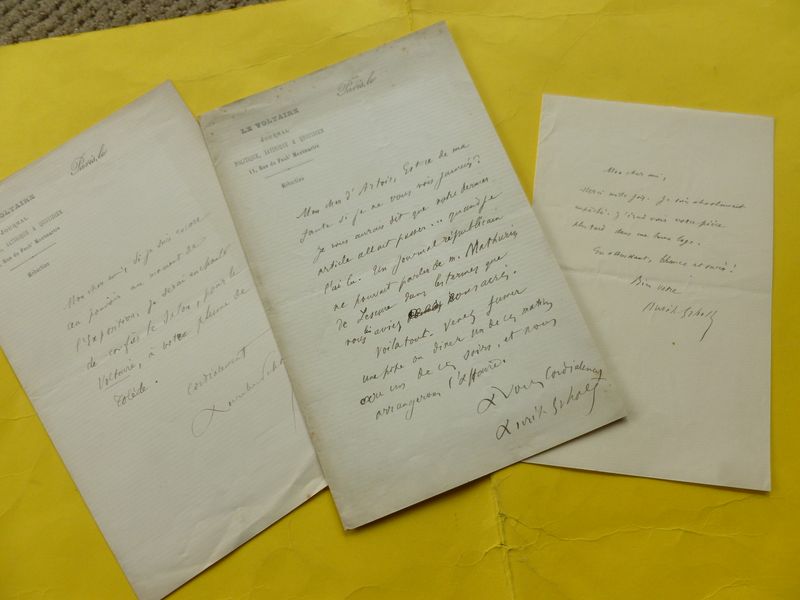 Paris, le
VOLTAIRE
JOURNAL
POLITIQUE, SATIRIQUE & QUOTIDIEN
11, Rue du Faubg Montmartre
Rédaction
Mon cher ami, si je suis encore
au pouvoir au moment de
l'Exposition, je serai enchanté
de confier le Salon, pour le
Voltaire, à votre plume de
Tolède.
Cordialement
Paris, le
LE VOLTAIRE
JOURNAL
POLITIQUE, SATIRIQUE & QUOTIDIEN
11, Rue du Faubg Montmartre
Rédaction
Mon cher d'Artois, Est-ce de ma
faute si je ne vous vois jamais?
Je vous aurais dit que votre dernier
article allait passer... quand je
l'ai lu. Un journal républicain
ne pouvait parler de M. Mathurin
de Lescure dans les termes que
vous lui aviez consacrés.
Voilà tout. Venez fumer
une pipe ou dîner un de ces matins
ou un de ces soirs, et nous
arrangerons l'affaire.
A vous cordialement
Aurélien Scholl
Mon cher ami,
Merci mille fois. Je suis absolument
empêché. J'irai voir votre pièce
plus tard dans une bonne loge.
En attendant, chance et succès!
Bien vôtre!
Aurélien Scholl